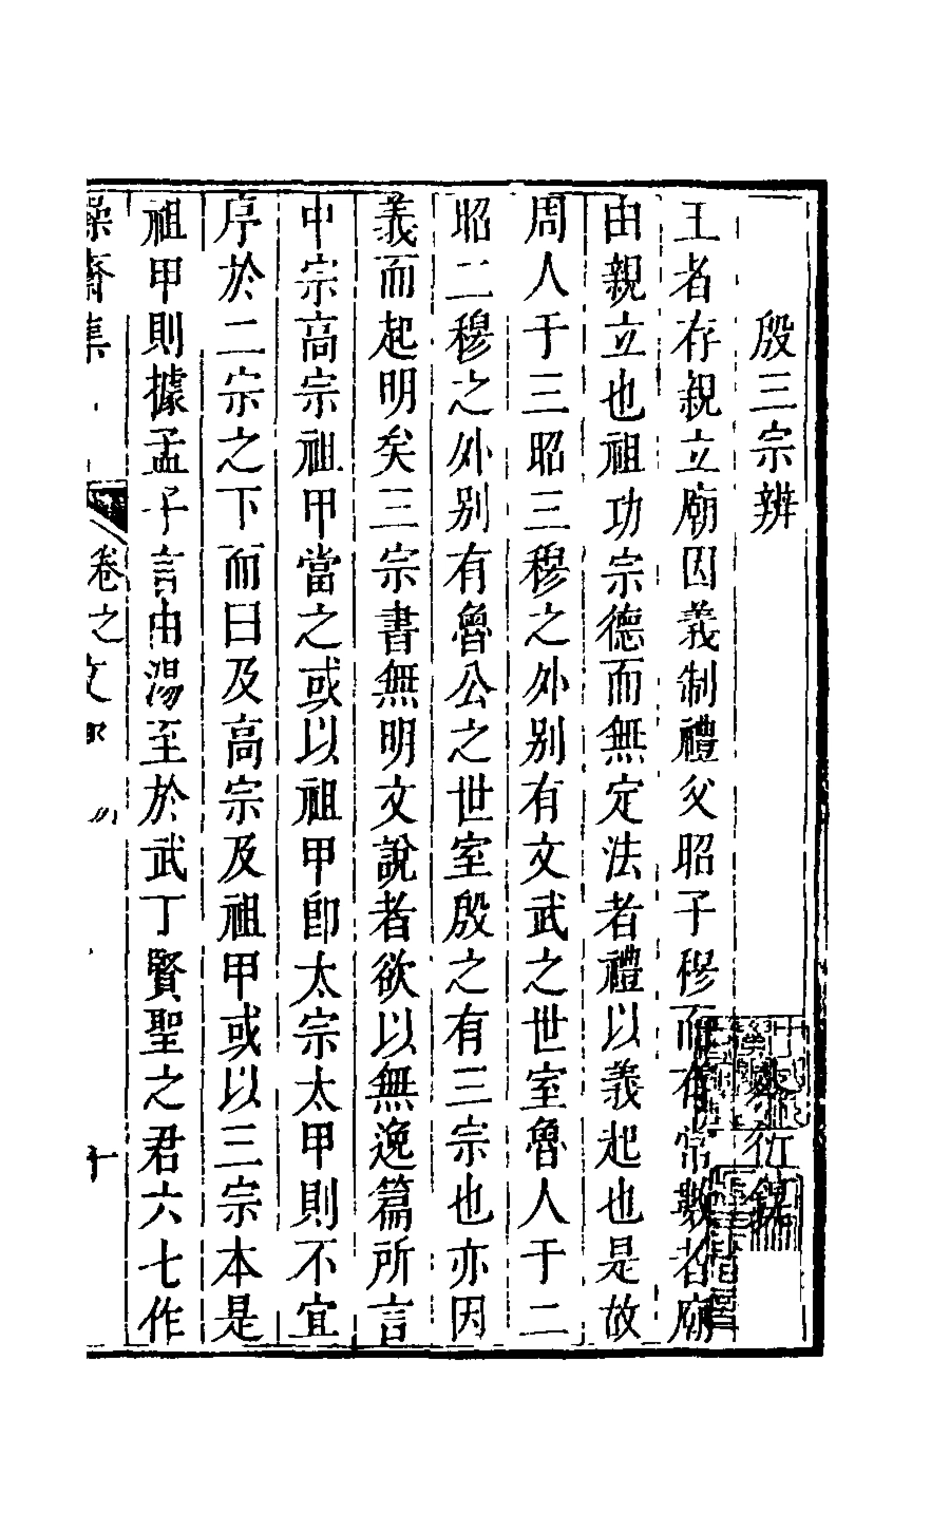 殷三宗辨
王者存親立廟因義制禮父昭子穆而有常數者廟
由親立也祖功宗德而無定法者禮以義起也是故
周人于三昭三穆之外别有文武之世室魯人于二
昭二穆之外别有魯公之世室殷之有三宗也亦因
義而起明矣三宗書無明文說者欲以無逸篇所言
中宗高宗祖甲當之或以祖甲卽太宗太甲則不宜
序於二宗之下而曰及高宗及祖甲或以三宗本是
祖甲則據孟子言由湯至於武丁賢聖之君六七作
卷之文
十